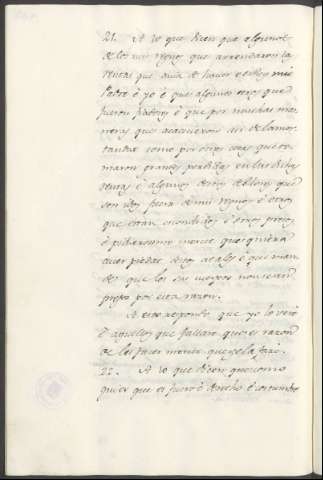 21. A lo que dicen que algunos
de los mis regnos que arrendaron la
rentas que avia de haver el Rey mio
Padre è yo è que algunos otros que
fueron fiadores è que por muchas ma
neras que acaecieron asi de la mor
tandat como por otras cosas que to
maron grandes perdidas en las dichas
rentas è algunos dellos que
son idos fuera de mis regnos è otros
que estan escondidos è otros presos
è pidieronme merced que quisiera
aver piedat de los atales è que man
de que los sus cuerpos non sean
presos por esta razon.
A esto respondo que yo lo veré
è aquellos que fallare que es razon
de les facer merced que gela faré.
22. A lo que dicen que como
quier que es fuero è derecho è costumbre